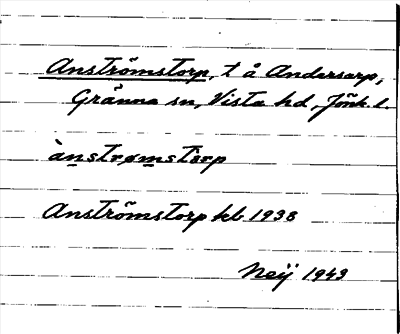 Anströmstorp, t å Andersarp,
Gränna sn, Vista hd, Jönk. l.
ànstrømstàrp
Anströmstorp kb 1938
Neij 1943